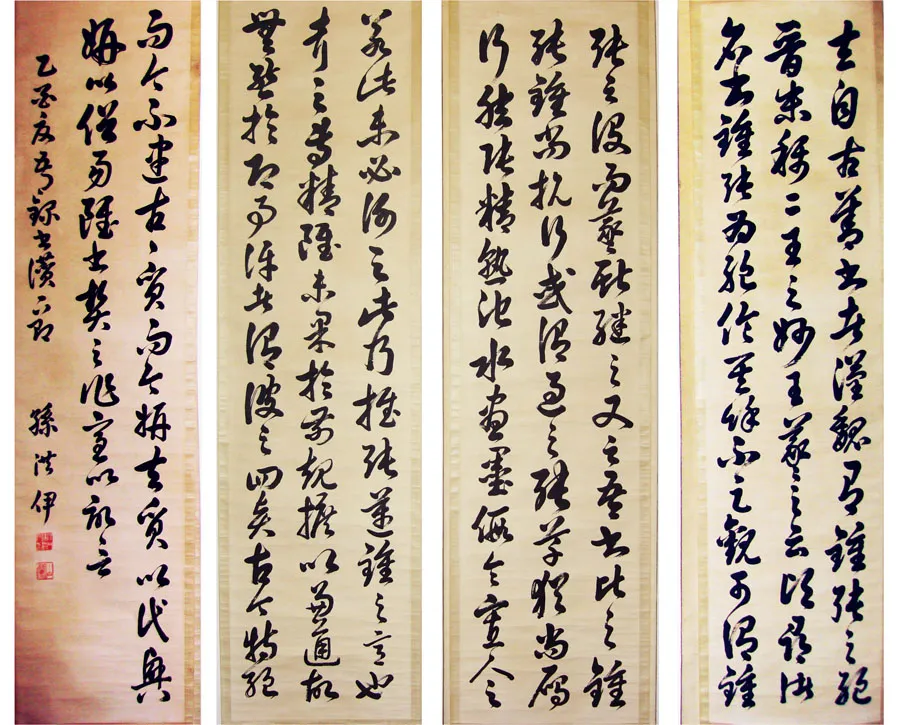 夫自古善書者漢魏有鍾張之絕
晉末稱二王之妙王羲之云頃尋諸
名書鍾張為絕倫其餘不足觀可謂鍾
張之沒而羲獻繼之又云吾書比之鍾
張鍾當抗行或謂過之張草猶當雁
行然張精熟池水盡墨假令寡人之
若此未必謝之此乃推張邁鍾之意也
考之專精雖未果於前規摭以兼通故
無慚於即事評者謂彼之四賢古今特絕
而今不逮古古質而今妍夫質以代興
妍以俗易雖書契之作適以記言
乙酉夏錄書譜一節
孫洪伊